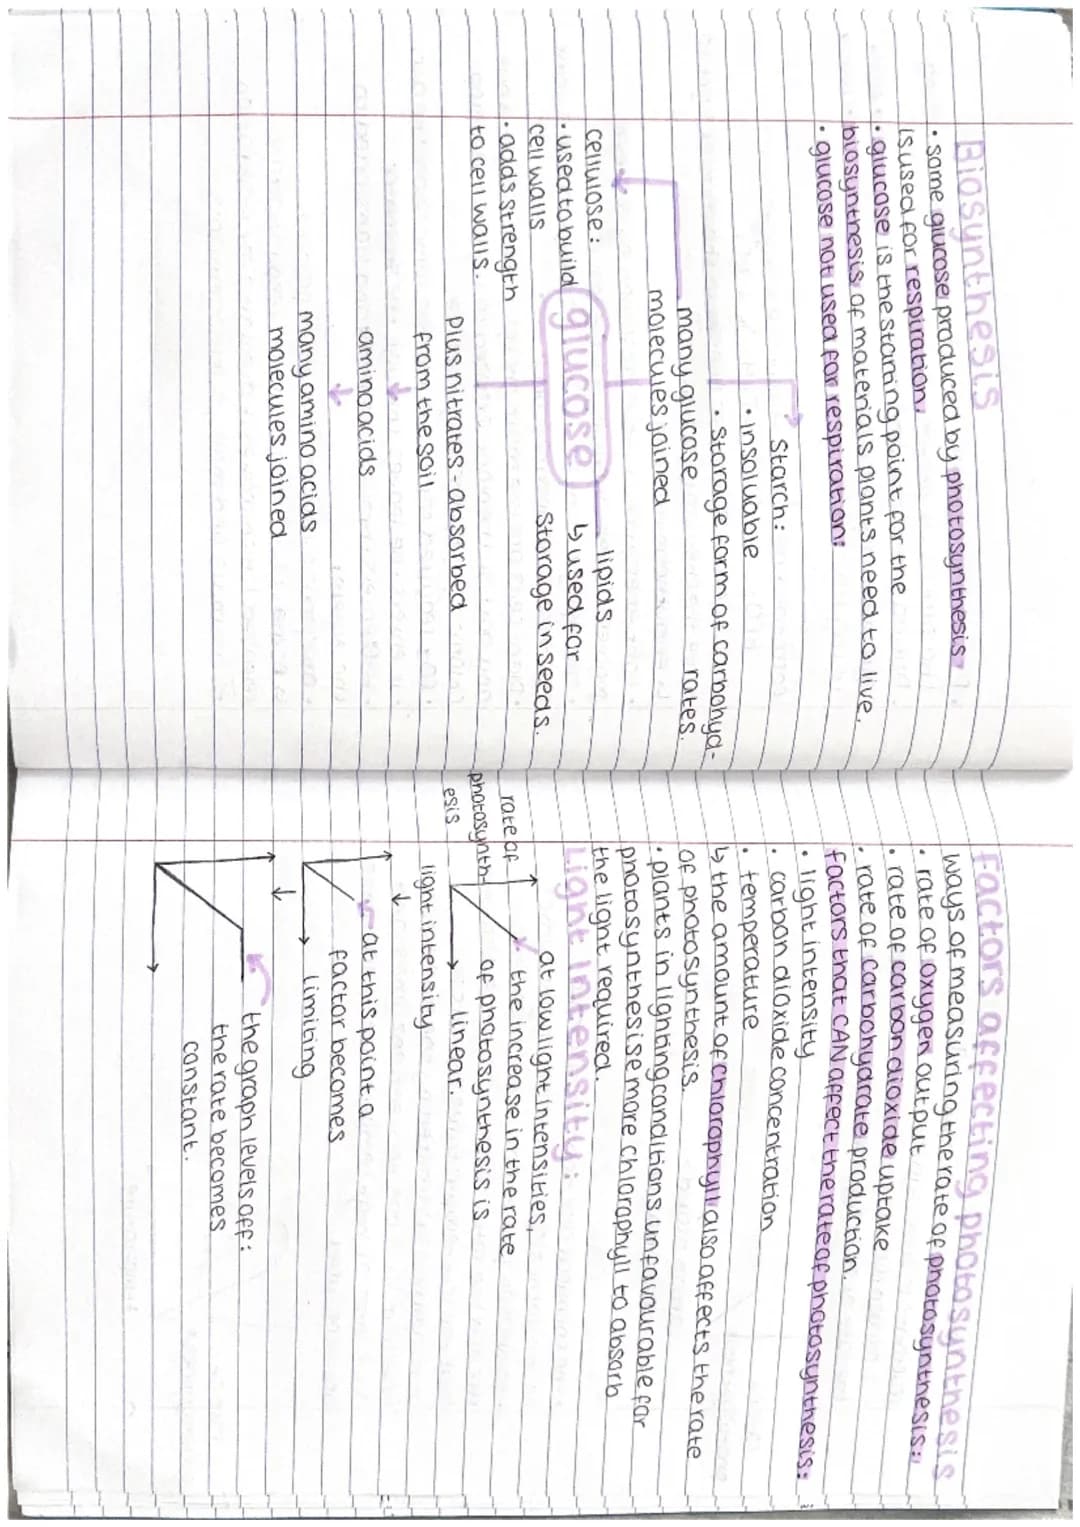 Biosynthesis
• some glucose produced by photosynthesis
is used for respiration.
• glucose is the starting point for the
biosynthesis of materials plants need to live.
• glucose not used for respiration:
Starch:
• insoluable
• Storage form of carbohyd-
rates.
many glucose
molecules joined
cellulose:
• used to build
cell walls
• adds strength
to cell walls.
glucose
lipids
↳ used for
Storage in seeds.
Plus nitrates - absorbed
from the soil
amino acids
many amino acids
molecules joined
Factors affecting photosynthesis
ways of measuring the rate of photosynthesis:
• rate of oxygen output
• rate of carbon dioxide uptake
• rate of carbohydrate production.
factors that CAN affect the rate of photosynthesis:
• light intensity
• carbon dioxide concentration
• temperature
↳ the amount of chlorophyll also affects the rate
of photosynthesis.
• plants in lighting conditions unfavourable for
photosynthesise more chlorophyll to absorb
the light required.
Light Intensity:
rate of
photosynth-
esis
light intensity
at low light intensities,
the increase in the rate
of photosynthesis is
linear.
at this point a
factor becomes
limiting
the graph levels off:
the rate becomes
constant.